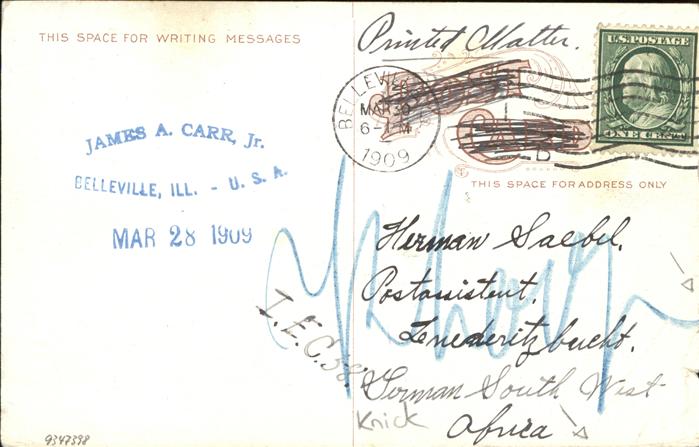 THIS SPACE FOR WRITING MESSAGES
Printed Matter.
U.S. POSTAGE
ONE CENT
BELLEVILLE
MAR 30
6 - PM
1909
B
POST
CARD
THIS SPACE FOR ADDRESS ONLY
JAMES A. CARR, Jr.
BELLEVILLE, ILL. - U. S. A.
MAR 28 1909
Herman Saebel,
Postassistent,
Luederitzbucht.
German South West
Africa
I.E.C. 58.
Knick
9347398